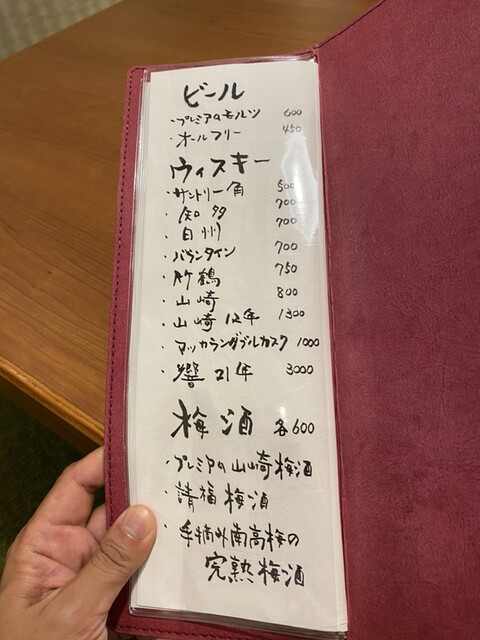 ビール
・プレミアムモルツ 600
・オールフリー 450
ウィスキー
・サントリー角 500
・知多 700
・白州 700
・バランタイン 700
・竹鶴 750
・山崎 800
・山崎 12年 1300
・マッカランダブルカスク 1000
・響 21年 3000
梅酒 各600
・プレミアム山崎梅酒
・請福梅酒
・手摘み南高梅の
完熟梅酒